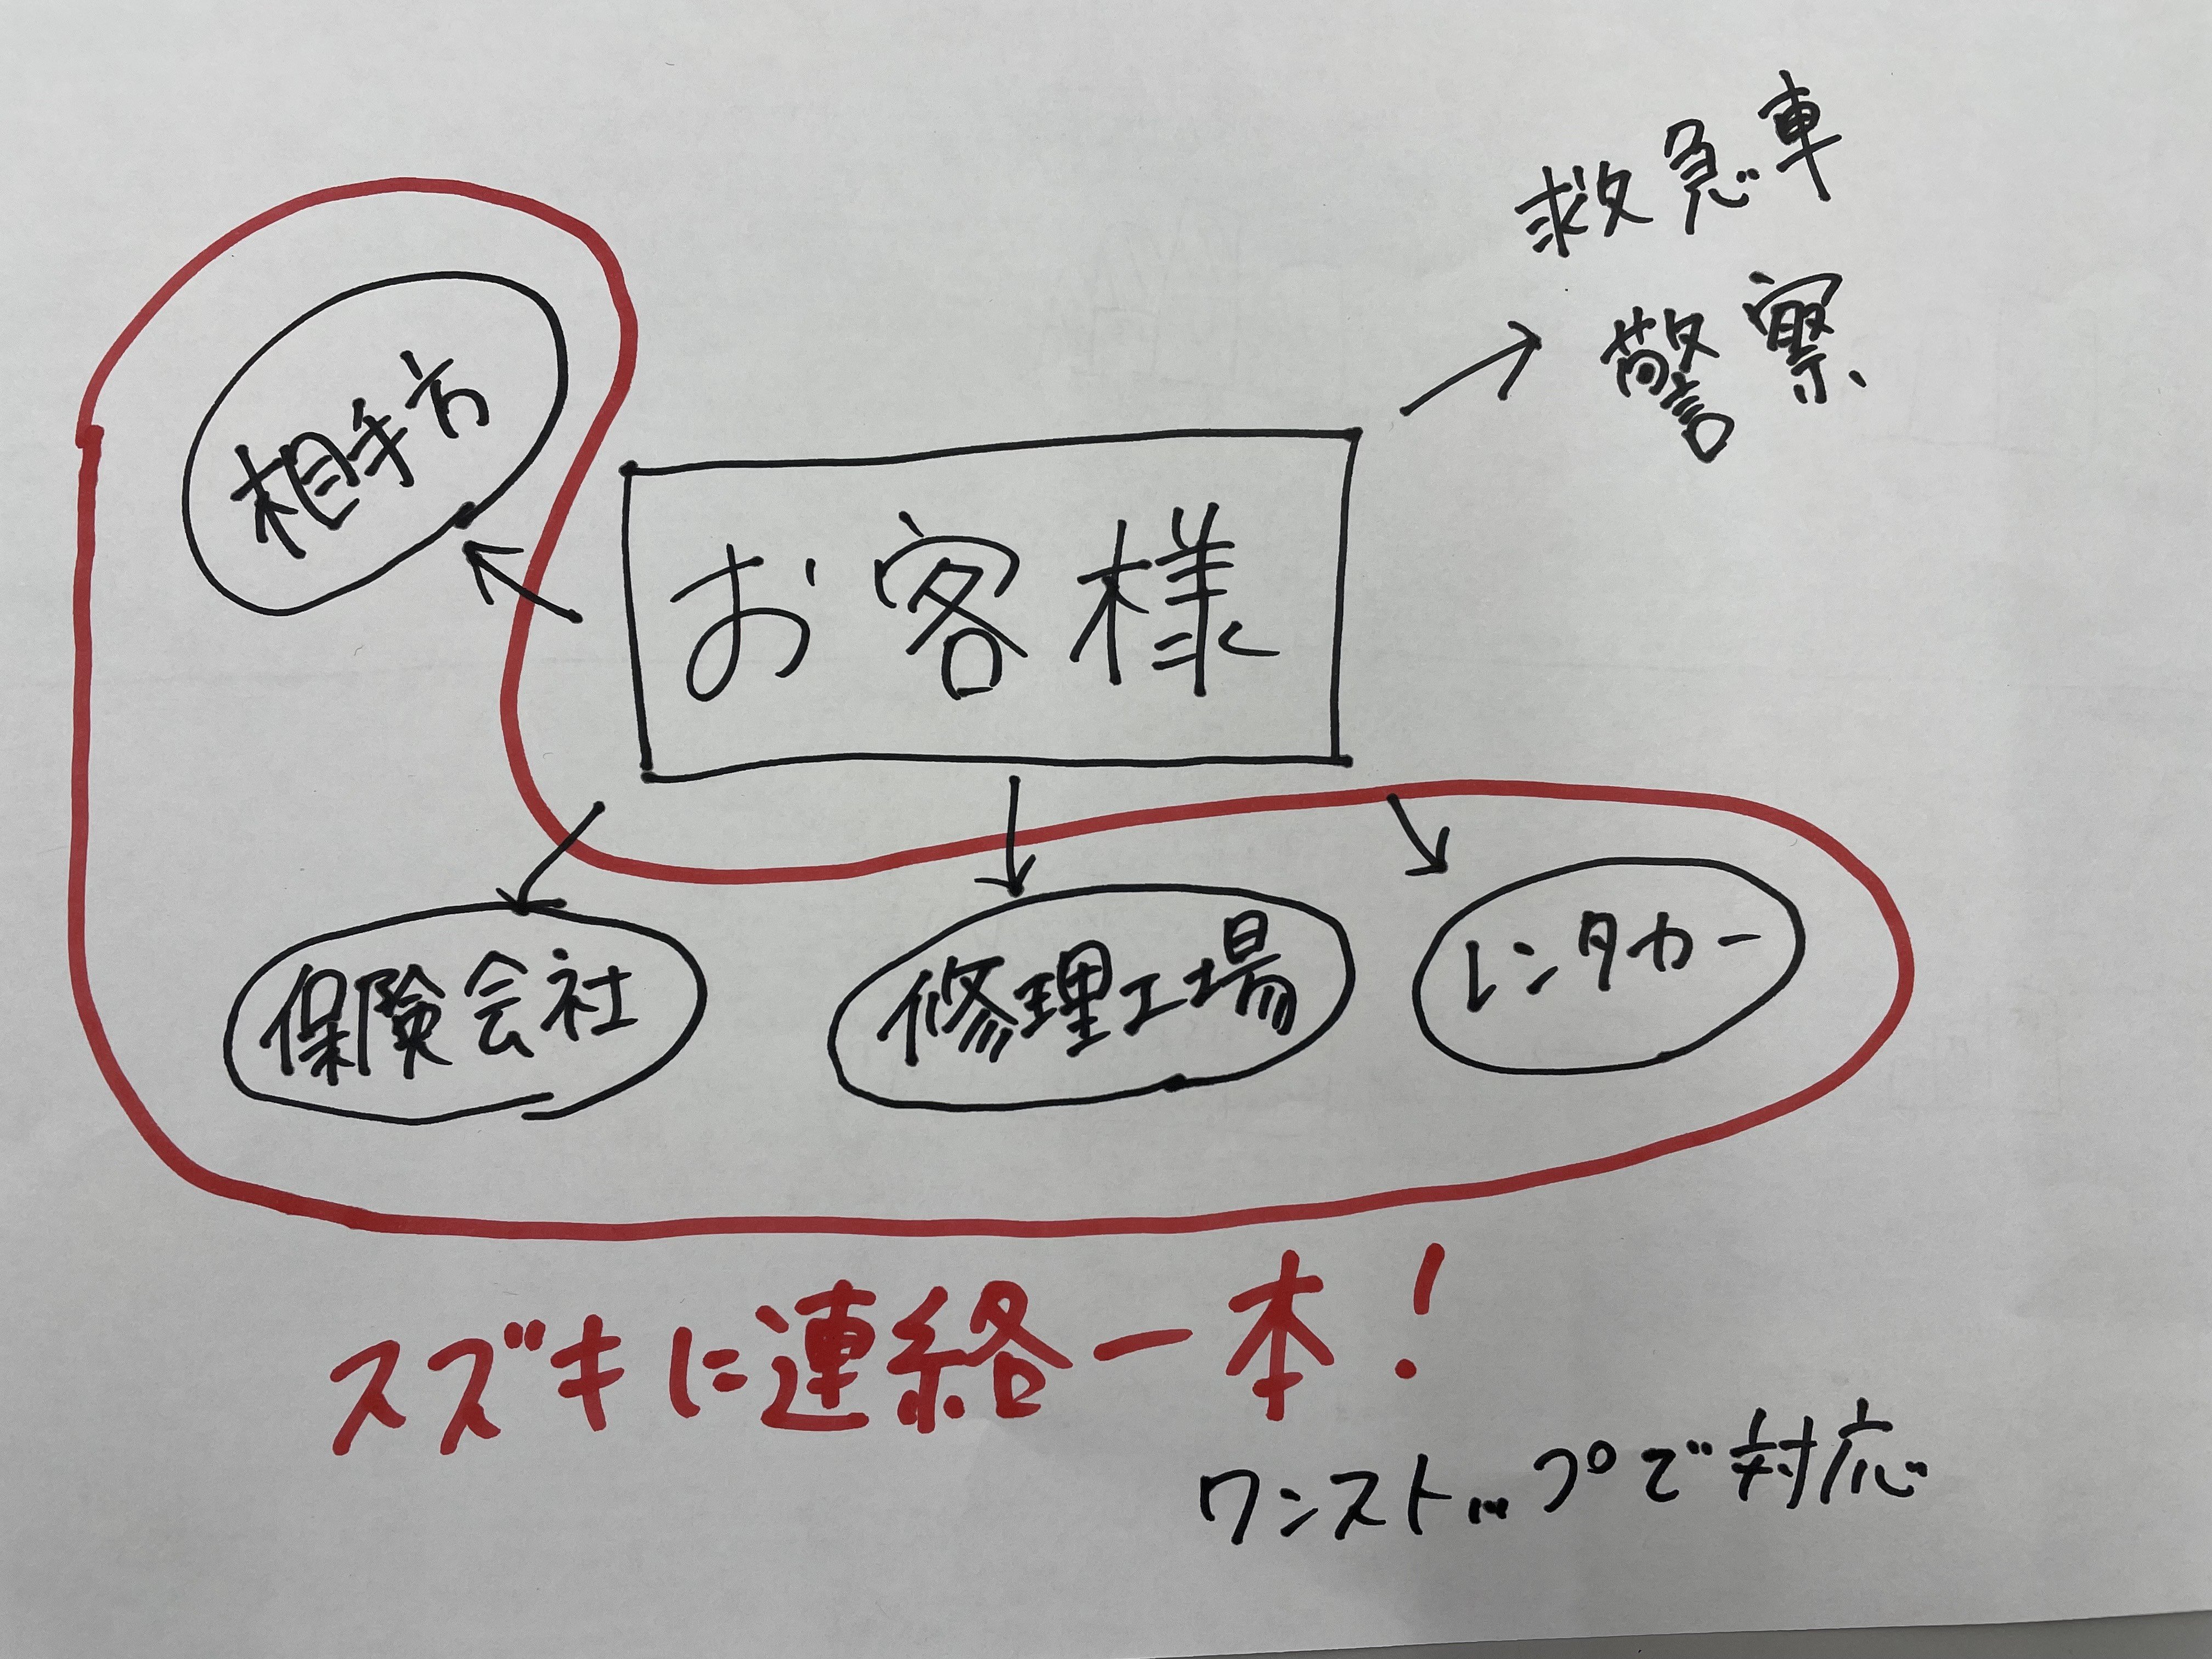 救急車
警察
相手方
お客様
保険会社
修理工場
レンタカー
スズキに連絡一本!
ワンストップで対応